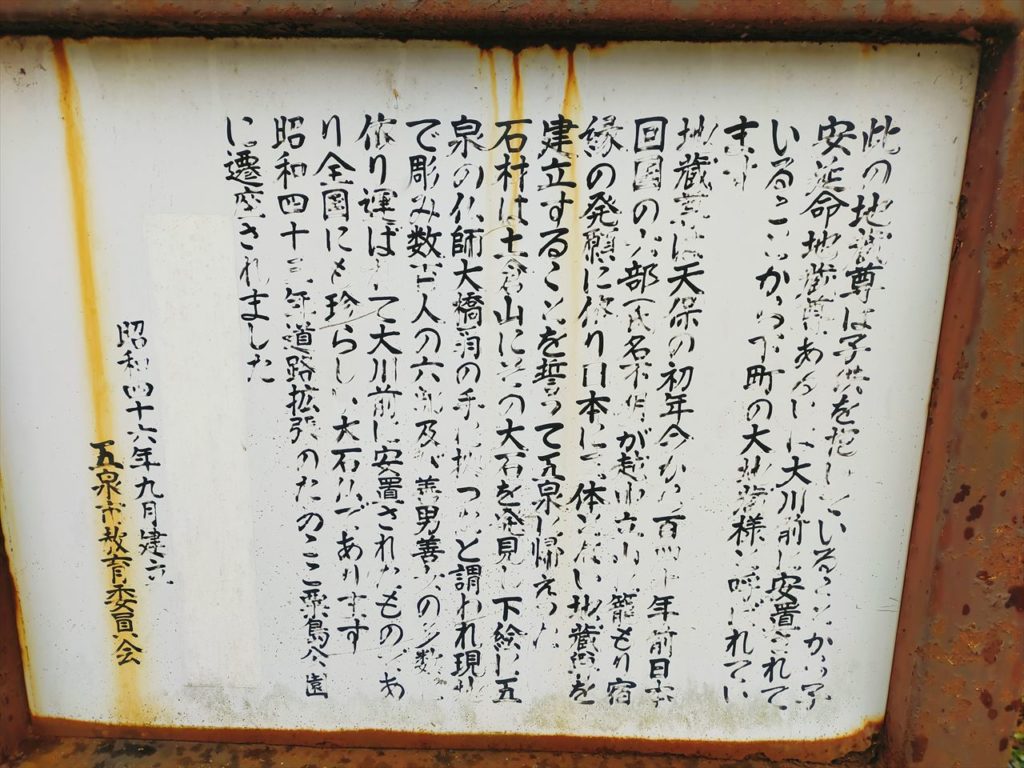 此の地蔵尊は子供を抱いているところから子
安延命地蔵尊あるいは大川前に安置されて
いるところから下町の大地蔵様と呼ばれてい
ます
地蔵尊は天保の初年今から百四十年前日本
回国の六部(氏名不明)が越中立山に籠もり宿
縁の発願に依り日本に二体とない地蔵尊を
建立することを誓って五泉に帰えった
石材は土倉山にその大石を発見し下絵は五
泉の仏師大橋 の手に拠つ と謂われ現地
で彫み数百人の 及び善男善女の 数 に
依り運ばれて大川前に安置されたものであ
り全国にも珍らしい大石仏であります
昭和四十三年道路拡張のためここ粟島公園
に遷座されました
昭和四十六年九月建立
五泉市教育委員会